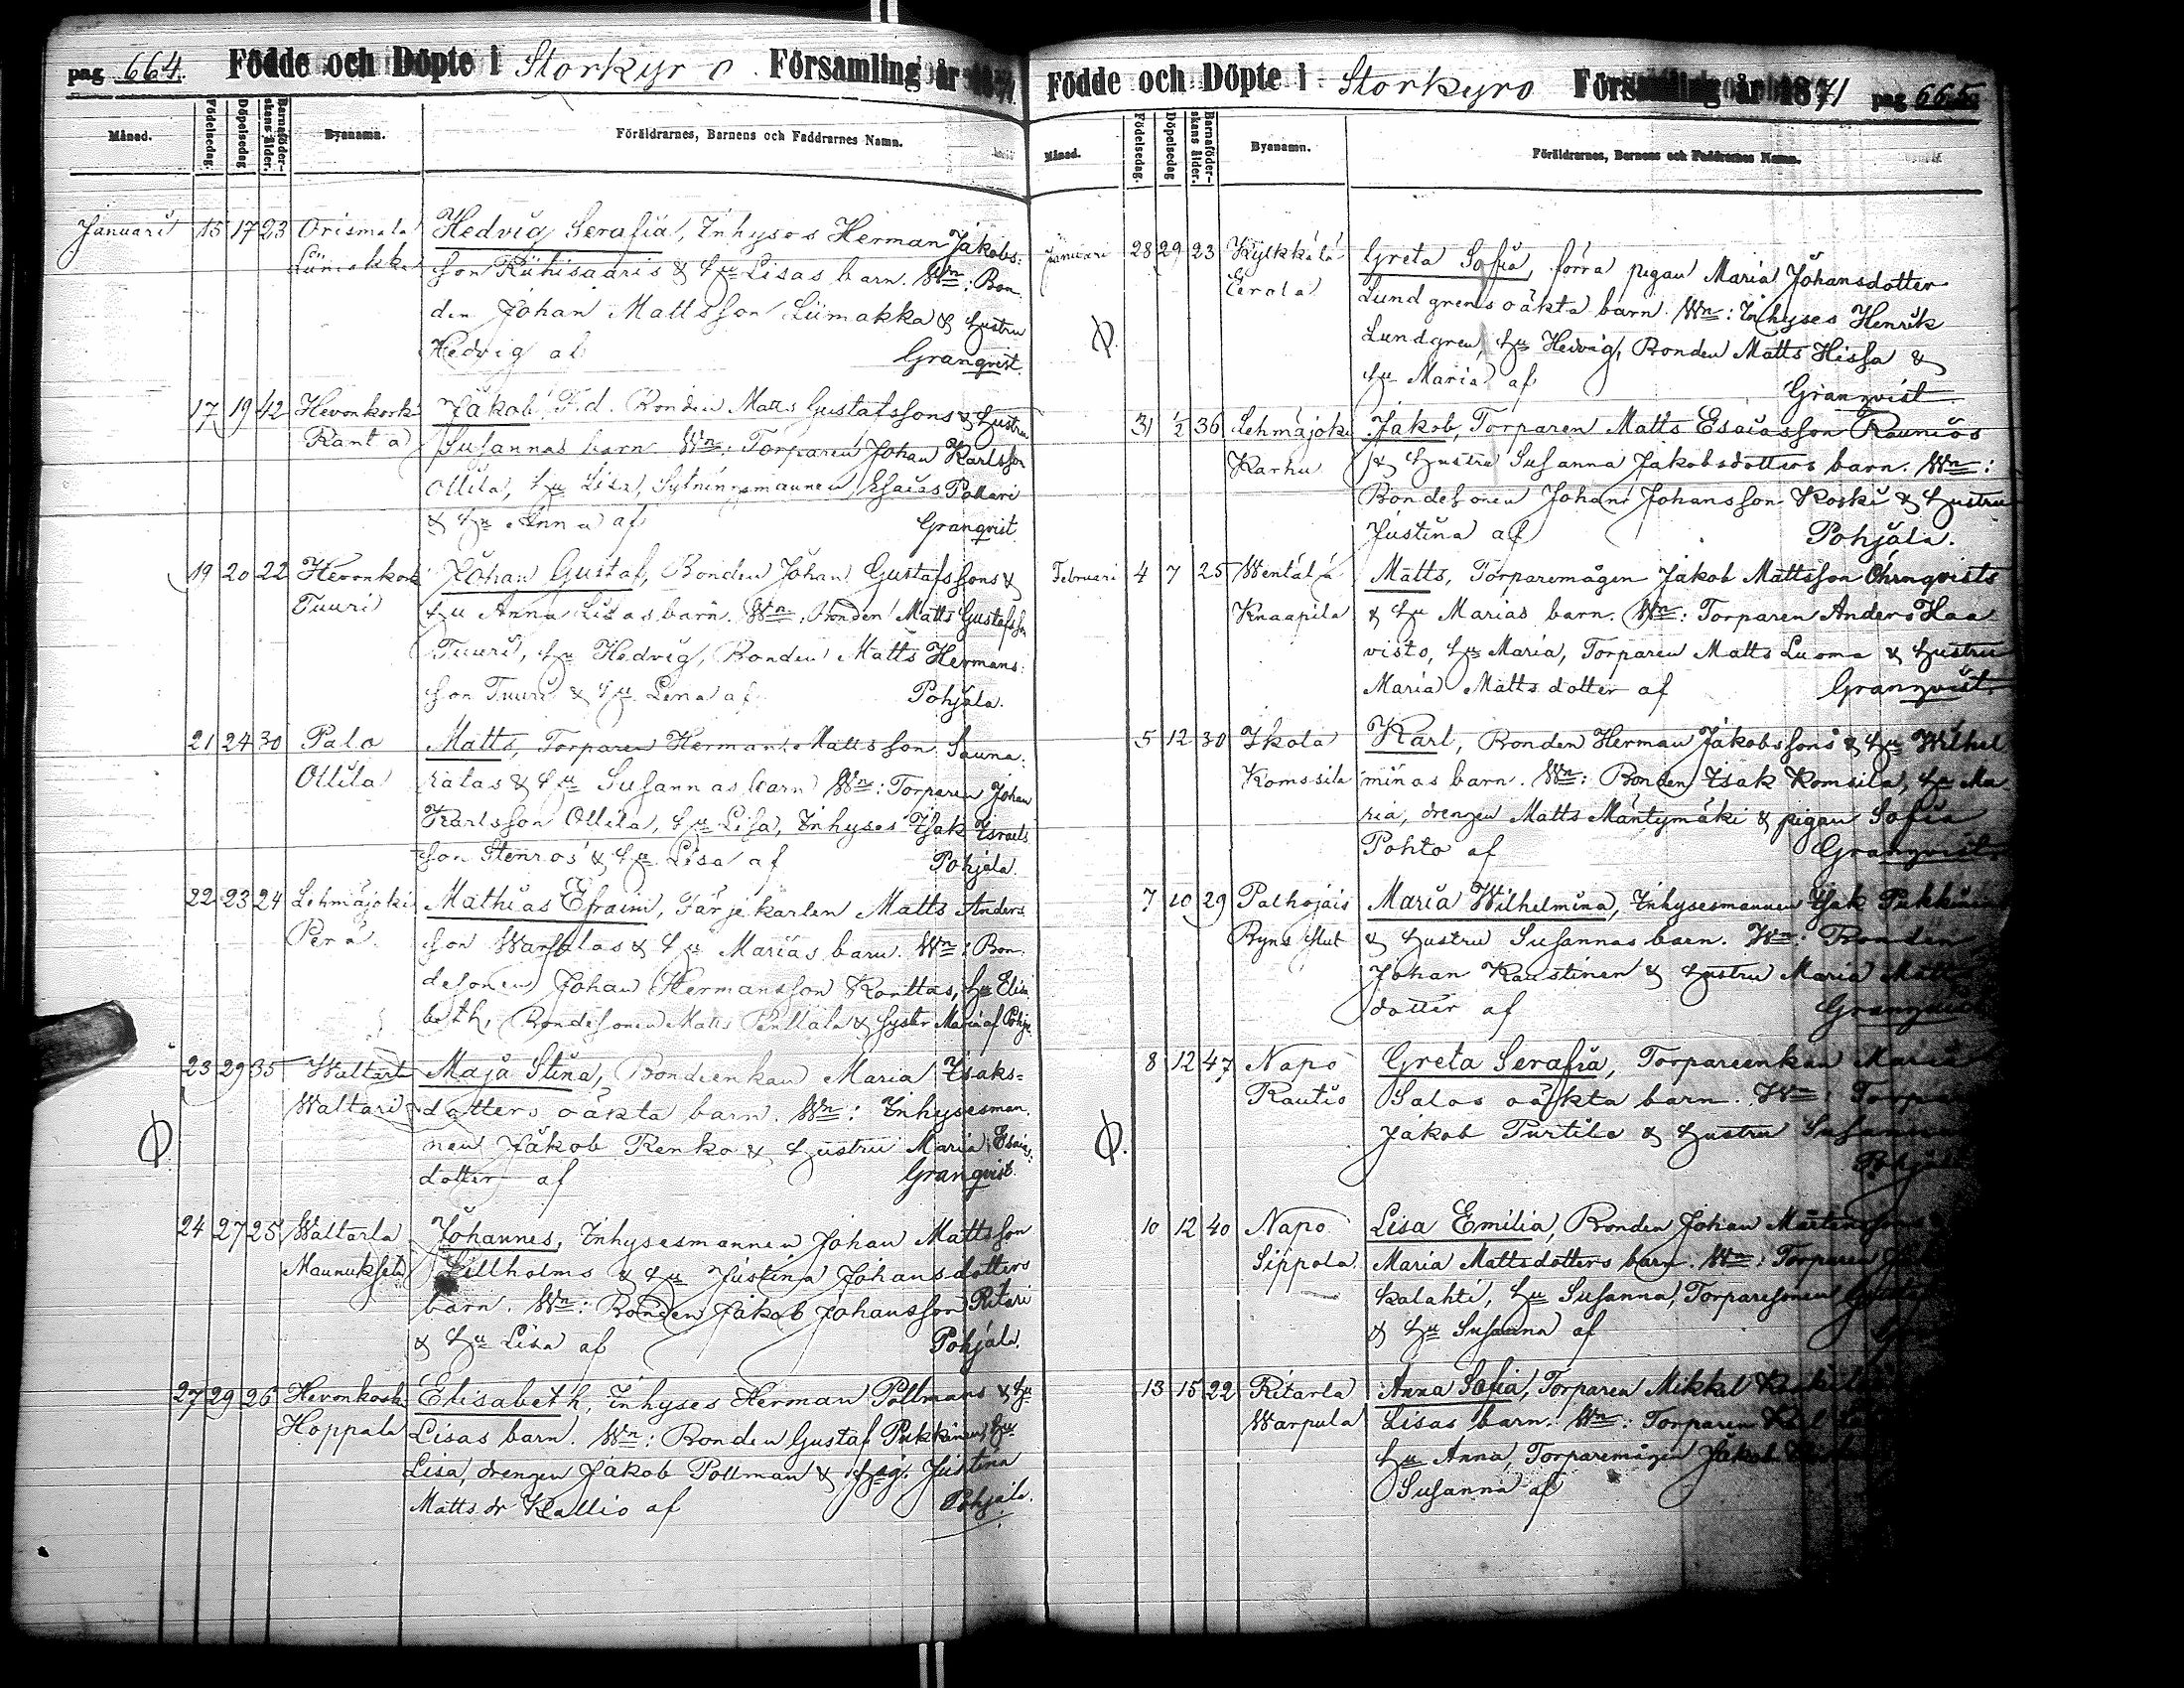 pag 664. Födde och Döpte i Storkyro Församling år 1871.
Månad. Födelsedag. Döpelsedag Barnaföderskans ålder. Byanamn. Föräldrarnes, Barnens och Faddrarnes Namn.
Januari 15 17 23 Orismala Hedvig Serafia, Inhyses Herman Jakobs:
son Riihisaaris & Hu Lisas barn. Wn: Bon
den Johan Mattsson Liimakka & Hustru
Hedvig af Granqvist.
17 19 42 Hevonkoski Jakob, F.d. Bonden Matts Gustafssons & Hustru
Ranta Susannas barn. Wn: Torparen Johan Karlsson
Ollila, Hu Lisa, Sytningsmannen Esaias Pollari
& Hu Anna af Granqvist
19 20 22 Hevonkoski Johan Gustaf, Bonden Johan Gustafssons &
Tuuri Hu Anna Lisas barn. Wn. Bonden Matts Gustafsson
Tuuri, Hu Hedvig, Bonden Matts Hermans:
son Tuuri & Hu Lena af Pohjala.
21 24 30 Palo Matts, Torparen Herman Mattsson Sauna:
Ollila & Hu Susannas barn Wn: Torparen Johan
Karlsson Ollila, Hu Lisa, Inhyses Isak Israels
son Stenros & Hu Lisa af Pohjala.
22 23 24 Lehmäjoki Mathias Efraim, Färjekarlen Matts Anders
Perä. son & Hu Marias barn. Wn: Bon
desonen Johan Hermansson Konttas, Hu Elisa
beth, Bondesonen Matts Penttala & syster Maria af Pohja
23 29 35 Waltari Maja Stina, Bondeenkan Maria Isaks=
Waltari dotters oäkta barn. Wn: Inhysesman
nen Jakob Renko & Hustru Maria Esaias
dotter af Granqvist.
24 27 25 Waltarla Johannes, Inhysesmannen Johan Mattsson
Maunuksela Lillholms & Hu Justina Johansdotters
barn. Wn: Bonden Jakob Johansson Ritari
& Hu Lisa af Pohjala.
27 29 26 Hevonkoski Elisabeth, Inhyses Herman Pollmans & Hu
Hoppala Lisas barn. Wn: Bonden Gustaf Pukkinen, Hu
Lisa, drengen Jakob Pollman & Justina
Matts dr Kallio af Pohjala.
Födde och Döpte i Storkyro Församling år 1871 pag 665
Månad. Födelsedag. Döpelsedag Barnaföderskans ålder. Byanamn. Föräldrarnes, Barnens och Faddrarnes Namn.
Januari 28 29 23 Kylkkälä Greta Sofia, förra pigan Maria Johansdotter
Eerola Lundgrens oäkta barn. Wn: Inhyses Henrik
Lundgren, Hu Hedvig, Bonden Matts Hissa &
Hu Maria af Granqvist
31 1/2 36 Lehmäjoki Jakob, Torparen Matts Esaiasson Raunios
Karhu & Hustru Susanna Jakobsdotters barn. Wn:
Bondesonen Johan Johansson Koski & Hustru
Justina af Pohjala.
Februari 4 7 25 Wentälä Matts, Torparemågen Jakob Mattsson Öhrnqvists
Knaapila & Hu Marias barn. Wn: Torparen Anders Haa
visto, Hu Maria, Torparen Matts Luoma & Hustru
Maria Matts dotter af Granqvist
5 12 30 Ikola Karl, Bonden Herman Jakobssons & Hu Wilhel
Komssila minas barn. Wn: Bonden Isak Komsila, Hu Ma
ria, drengen Matts Mäntymäki & pigan Sofia
Pohto af Granqvist
7 10 29 Palhojais Maria Wilhelmina, Inhysesmannen Isak Pukkinens
& Hustru Susannas barn. Wn: Bonden
Johan Kaustinen & Hustru Maria Matts
dotter af Granqvist
8 12 47 Napo Greta Serafia, Torpareenkan Maria
Rautio Salos oäkta barn. Wn: Torparen
Jakob Purtilo & Hustru Susanna
Pohjala
10 12 40 Napo Lisa Emilia, Bonden Johan Mårtenssons &
Sippola Maria Mattsdotters barn. Wn: Torparen
kalahti, Hu Susanna, Torparesonen
& Hu Susanna af
13 15 22 Ritarla Anna Sofia, Torparen Mikkel
Warpula Lisas barn. Wn: Torparen
Hu Anna, Torparemågen Jakob
Susanna af